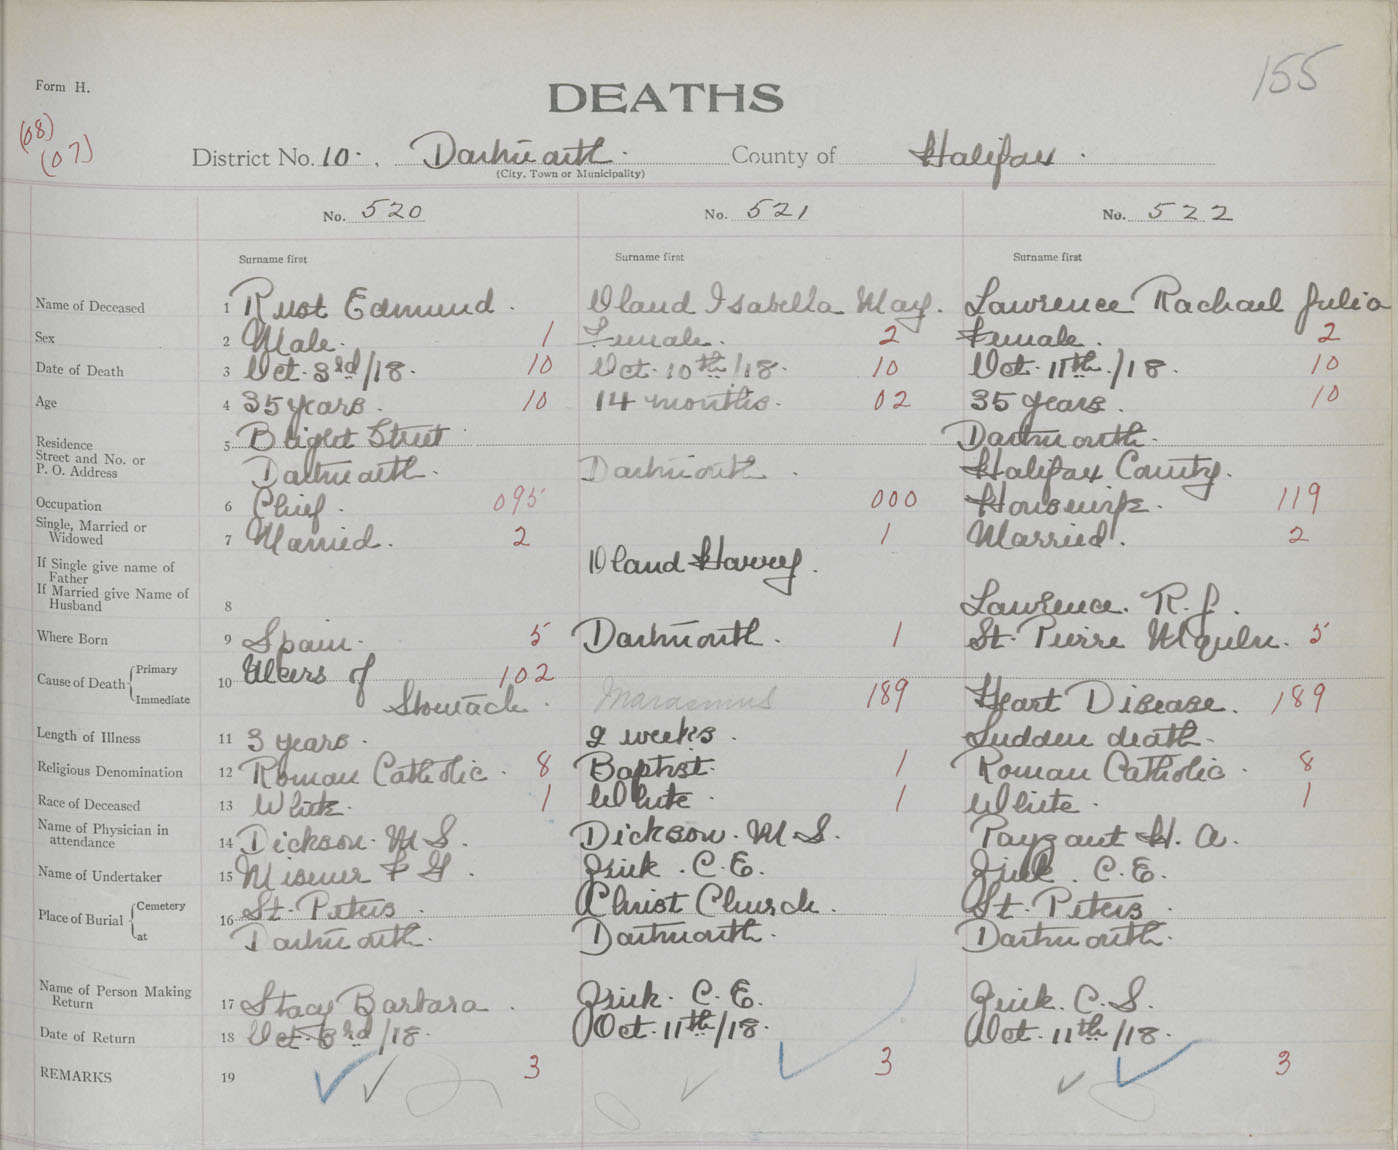 155
Form H.
DEATHS
(08)
(07)
District No. 10. Dartmouth. County of Halifax.
(City, Town or Municipality)
No. 520 No. 521 No. 522
Surname first Surname first Surname first
Name of Deceased 1 Rust Edmund. Oland Isabella May. Lawrence Rachael Julia
Sex 2 Male. 1 Female. 2 Female. 2
Date of Death 3 Oct. 3rd/18. 10 Oct. 10th/18. 10 Oct. 11th/18. 10
Age 4 35 years. 10 14 months. 02 35 years. 10
Residence 5 Street Dartmouth.
Street and No. or
P. O. Address Dartmouth. Dartmouth. Halifax County.
Occupation 6 Chief. 095 000 Housewife. 119
Single, Married or
Widowed 7 Married. 2 1 Married. 2
If Single give name of
Father Oland Harvey.
If Married give Name of
Husband 8 Lawrence. R. J.
Where Born 9 Spain. 5 Dartmouth. 1 St. Pierre 5
Cause of Death Primary 10 Ulcers of 102
Immediate Stomach. Marasmus 189 Heart Disease. 189
Length of Illness 11 3 years. 2 weeks. Sudden death.
Religious Denomination 12 Roman Catholic. 8 Baptist. 1 Roman Catholic. 8
Race of Deceased 13 White. 1 White. 1 White. 1
Name of Physician in
attendance 14 Dickson. M S. Dickson. M S. Payzant H. A.
Name of Undertaker 15 Misener C. E. C. E.
Place of Burial Cemetery 16 St. Peters. Christ Church. St. Peters.
at Dartmouth. Dartmouth. Dartmouth.
Name of Person Making
Return 17 Stacy Barbara. C. E. C. S.
Date of Return 18 Oct. 3rd/18. Oct. 11th/18. Oct. 11th/18.
REMARKS 19 3 3 3